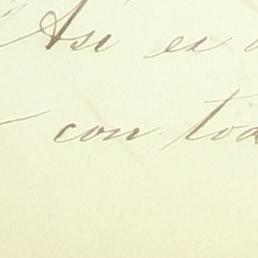 Así es
con tod